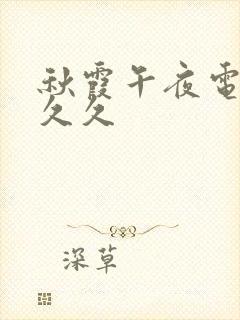 秋霞午夜電
久久
深草